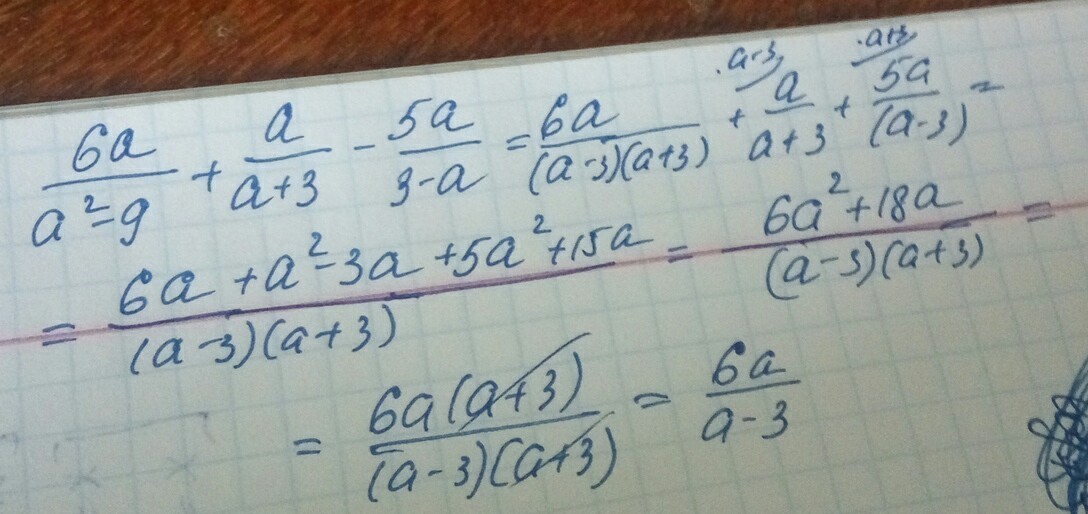 6a/(a²-9) + a/(a+3) - 5a/(3-a) = 6a/((a-3)(a+3)) + a/(a+3) ·a-3 + 5a/(a-3) ·a+3 =
= (6a+a²-3a+5a²+15a)/((a-3)(a+3)) = (6a²+18a)/((a-3)(a+3)) =
= 6a(a+3)/((a-3)(a+3)) = 6a/(a-3)